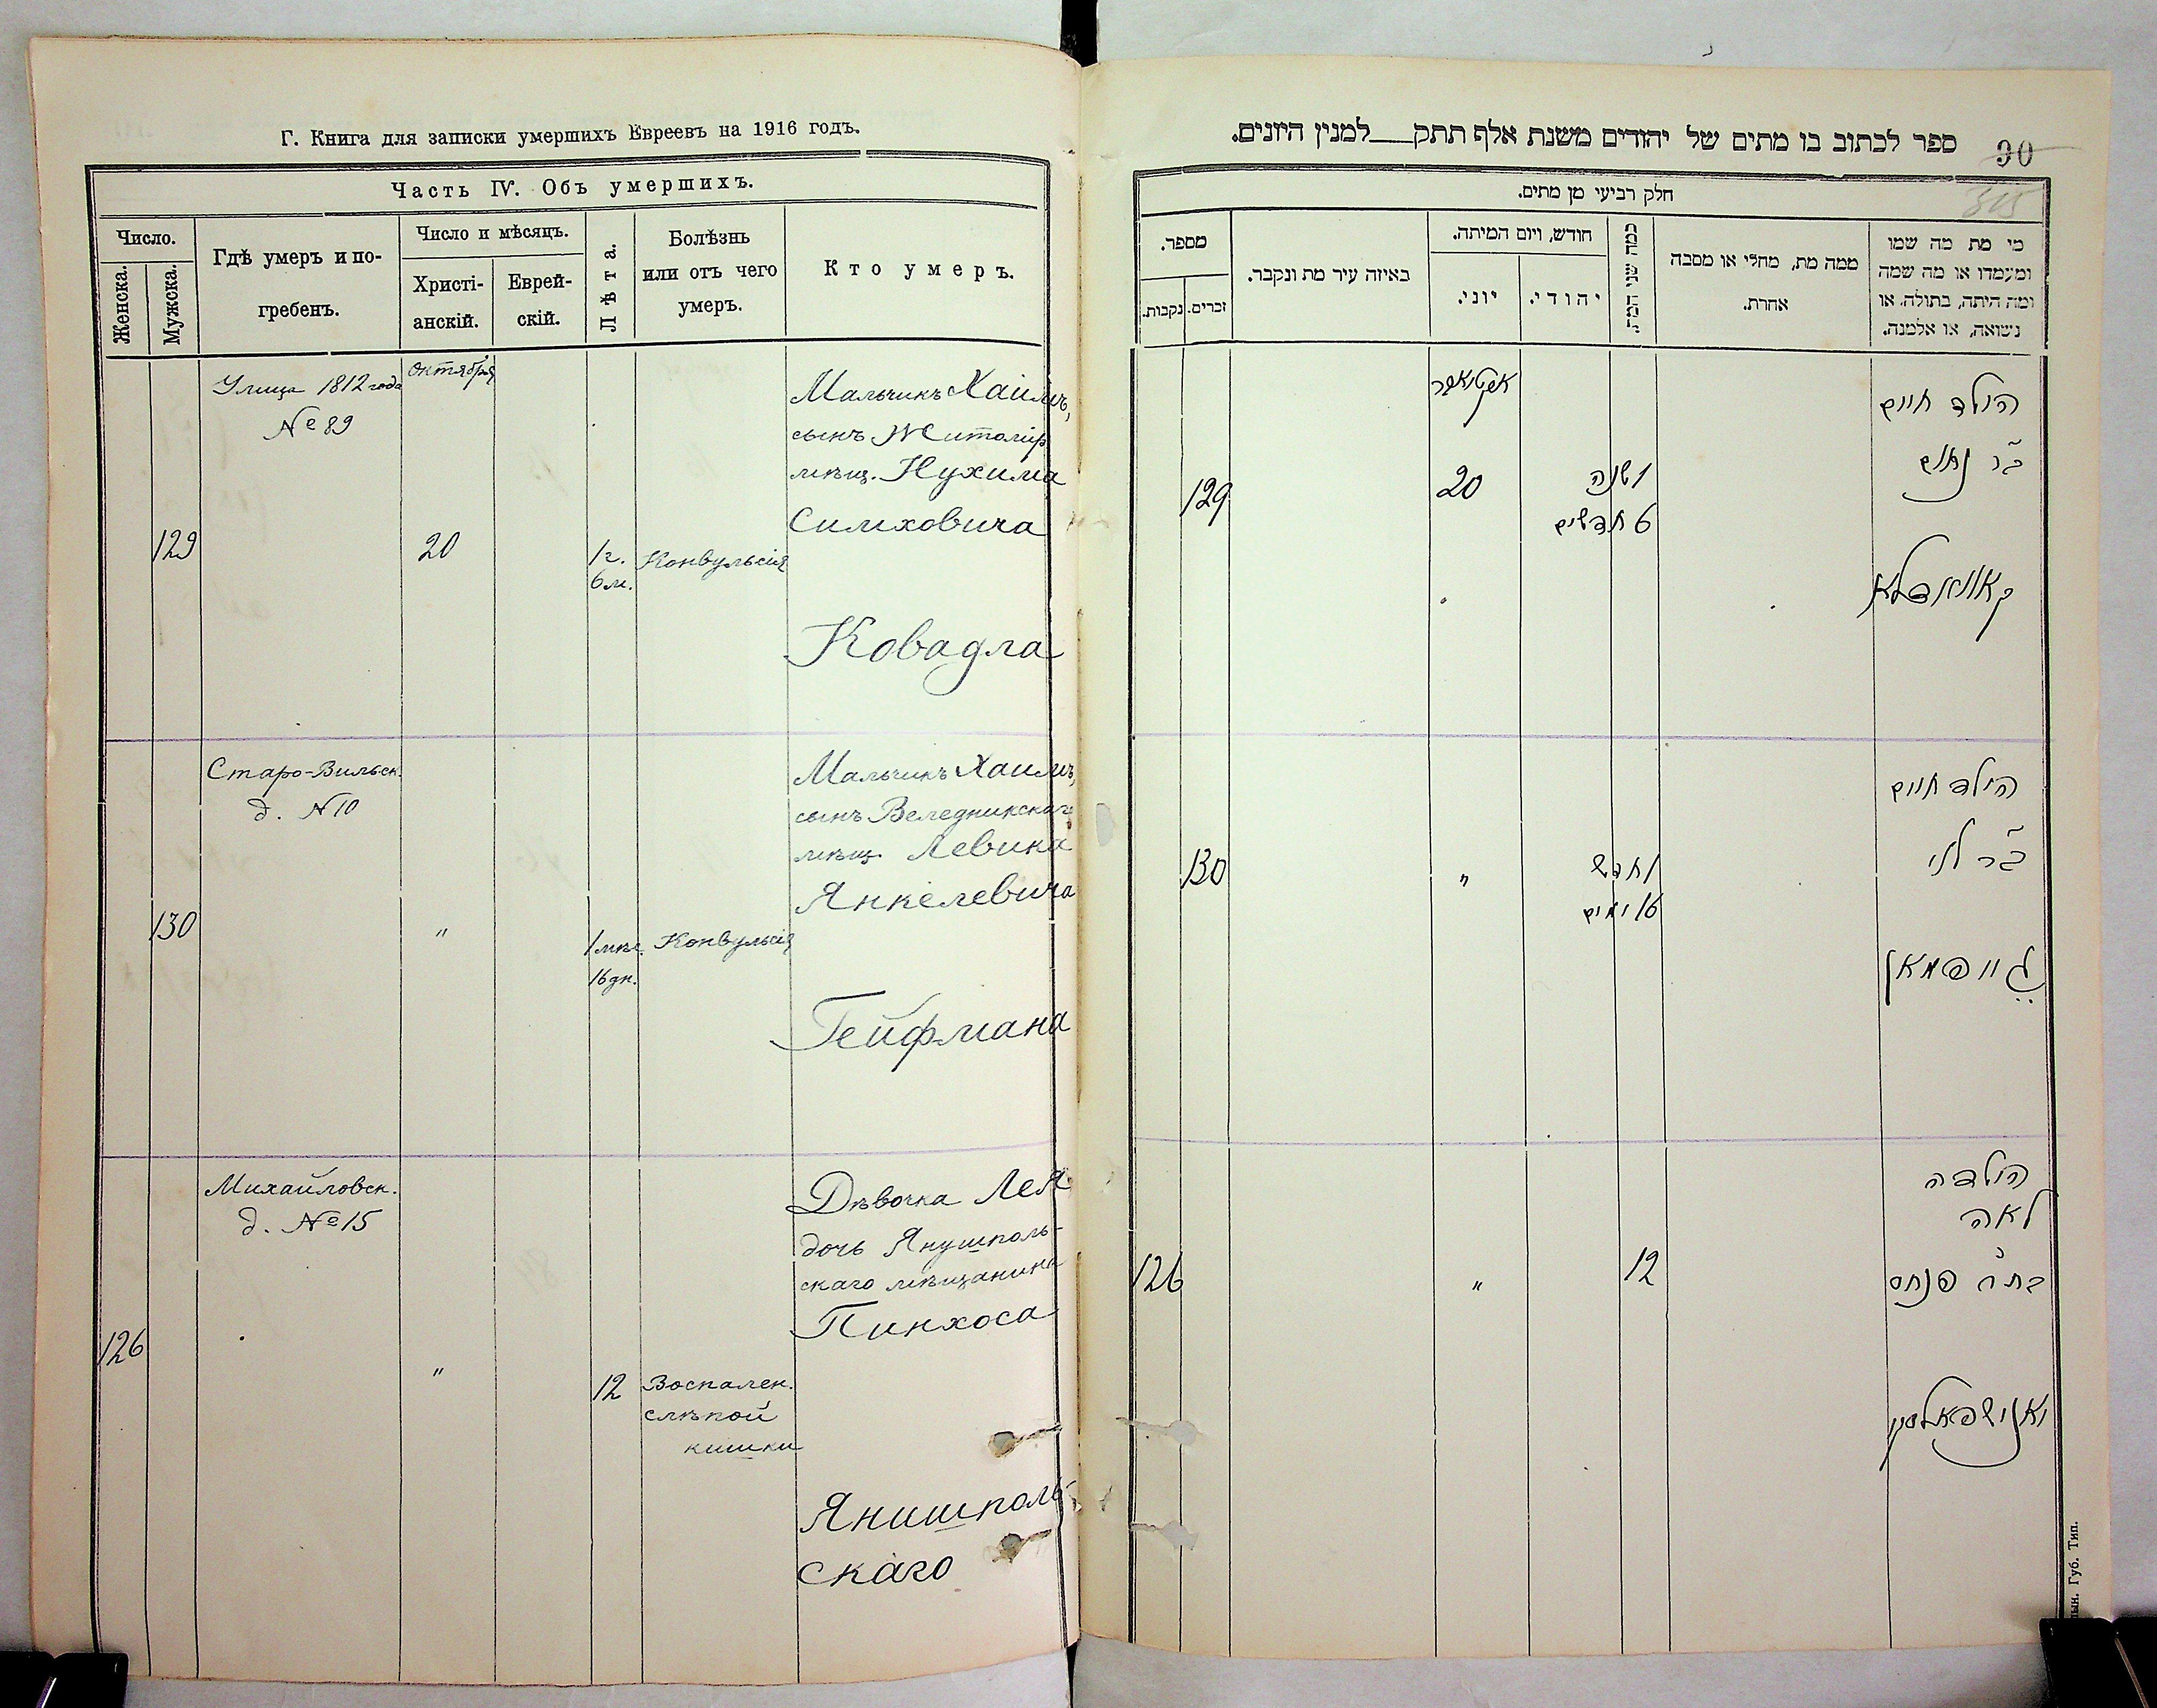 Г. Книга для записки умершихъ Евреевъ на 1916 годъ.
Часть IV. Объ умершихъ.
Число.
Женска.
Мужска.
Гдѣ умеръ и по-
гребенъ.
Число и мѣсяцъ.
Христі-
анскій.
Еврей-
скій.
Лѣта.
Болѣзнь
или отъ чего
умеръ.
Кто умеръ.
129
Улица 1812 года
№ 89
октября
20
1 г.
6 м.
Конвульсія
Мальчикъ Хаимъ,
сынъ Житомір
мѣщ. Нухима
Симховича
Ковадла
130
Старо-Вильск.
д. № 10
"
1 мѣс.
16 дн.
Конвульсія
Мальчикъ Хаимъ,
сынъ Веледникскаго
мѣщ. Левика
Янкелевича
Гейфмана
126
Михайловск.
д. № 15
"
12
Воспален.
слѣпой
кишки
Дѣвочка Лея
дочь Янушполь-
скаго мѣщанина
Пинхоса
Янишполь-
скаго
ספר לכתוב בו מתים של יהודים משנת אלף תתק__למנין היונים.
30
315
חלק רביעי מן מתים.
מי מת מה שמו
ומעמדו או מה שמה
ומה היתה, בתולה, או
נשואה, או אלמנה.
ממה מת, מחלי או מסבה
אחרת.
כמה שני המת.
חודש, ויום המיתה.
יהודי.
יוני.
באיזה עיר מת ונקבר.
מספר.
זכרים.
נקבות.
הילד חיים
ב"ר נחום
קאוואדלא
1 שנה
6 חדשים
אקטאבר
20
129
הילד חיים
ב"ר לוי
גייפמאן
1 חדש
16 ימים
"
130
הילדה
לאה
בת ר' פנחס
יאנישפאלסקי
12
"
126
лын. Губ. Тип.